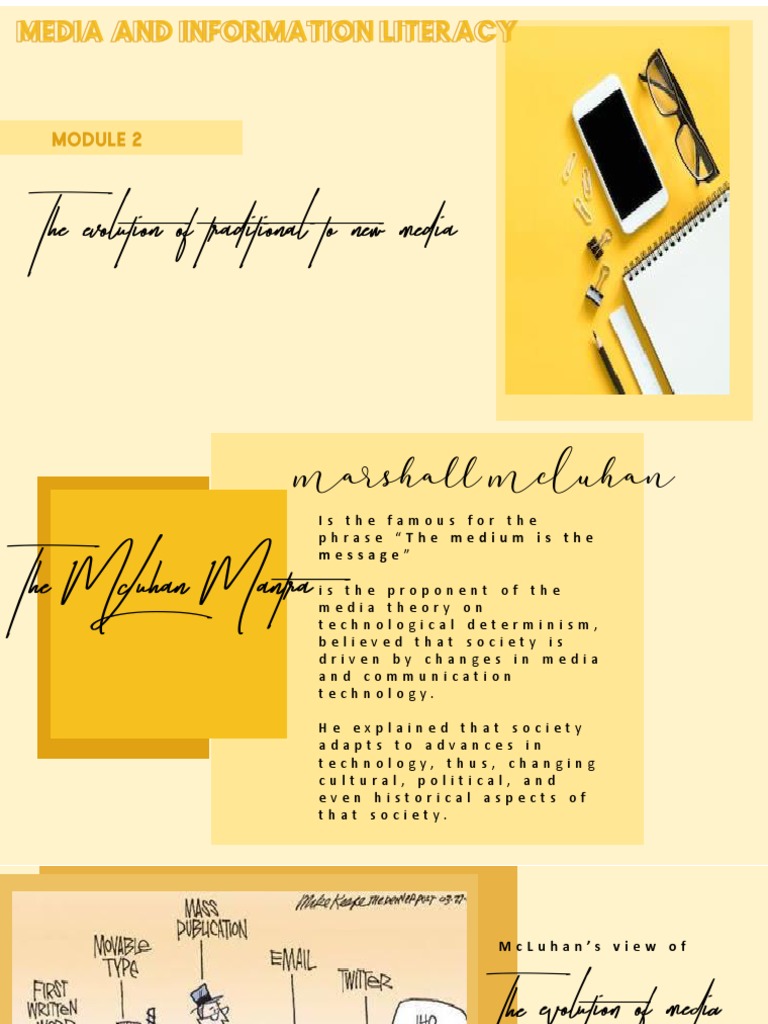 MEDIA AND INFORMATION LITERACY
MODULE 2
The evolution of traditional to new media
marshall mcluhan
The Mcluhan Mantra
Is the famous for the
phrase “The medium is the
message”
is the proponent of the
media theory on
technological determinism,
believed that society is
driven by changes in media
and communication
technology.
He explained that society
adapts to advances in
technology, thus, changing
cultural, political, and
even historical aspects of
that society.
Mike Keefe THE DENVER POST
MASS
PUBLICATION
MOVABLE
TYPE
EMAIL
TWITTER
FIRST
WRITTEN
WORD
McLuhan’s view of
The evolution of media